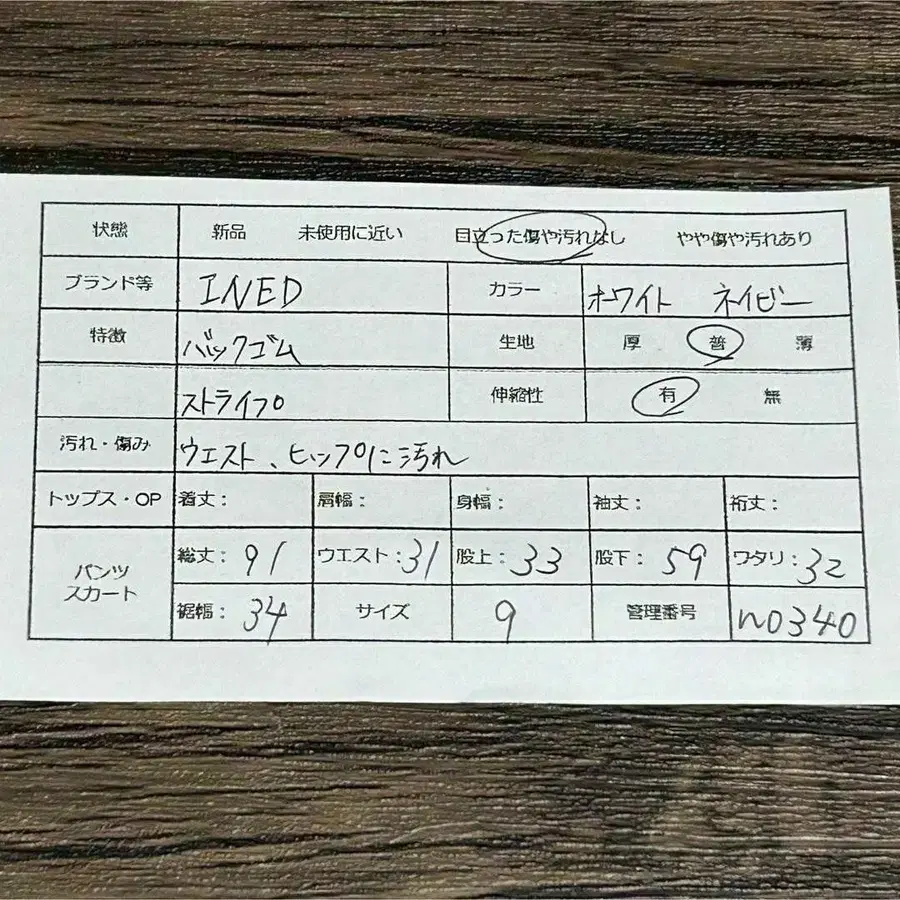 状態 新品 未使用に近い 目立った傷や汚れなし やや傷や汚れあり
ブランド等 INED カラー ホワイト ネイビー
特徴 バックゴム 生地 厚 普 薄
ストライプ 伸縮性 有 無
汚れ・傷み ウエスト、ヒップに汚れ
トップス・OP 着丈: 肩幅: 身幅: 袖丈: 裄丈:
パンツ スカート 総丈: 91 ウエスト: 31 股上: 33 股下: 59 ワタリ: 32
裾幅: 34 サイズ 9 管理番号 n0340